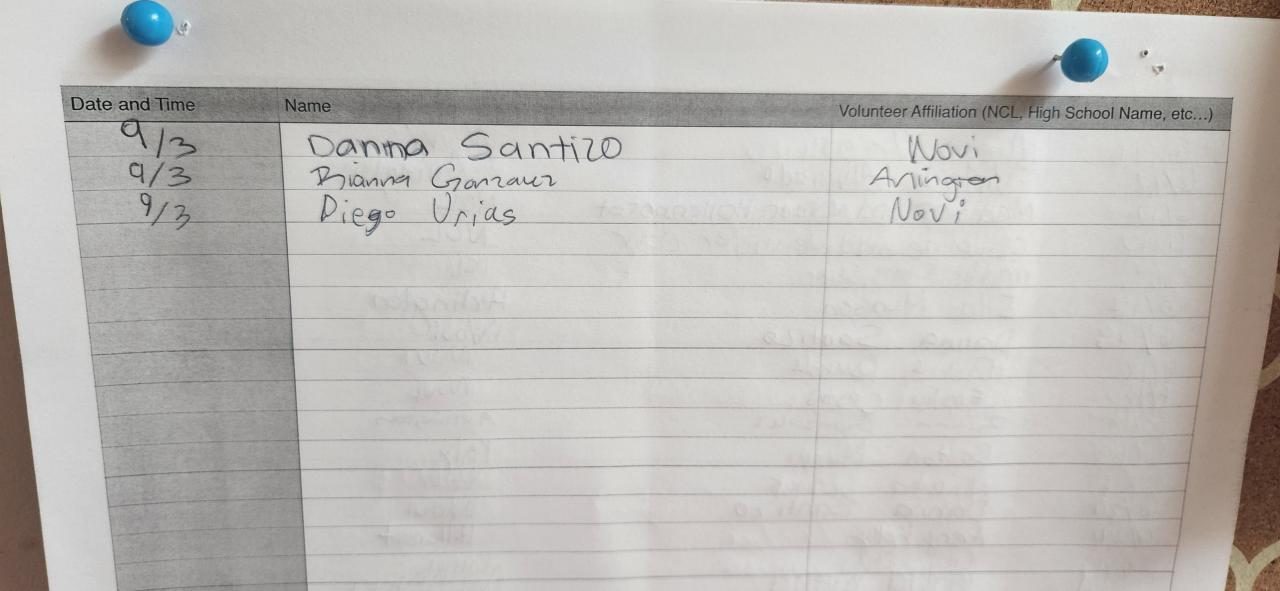 Date and Time Name Volunteer Affiliation (NCL, High School Name, etc...)
9/3 Danna Santizo Novi
9/3 Brianna Gonzalez Arlington
9/3 Diego Urias Novi